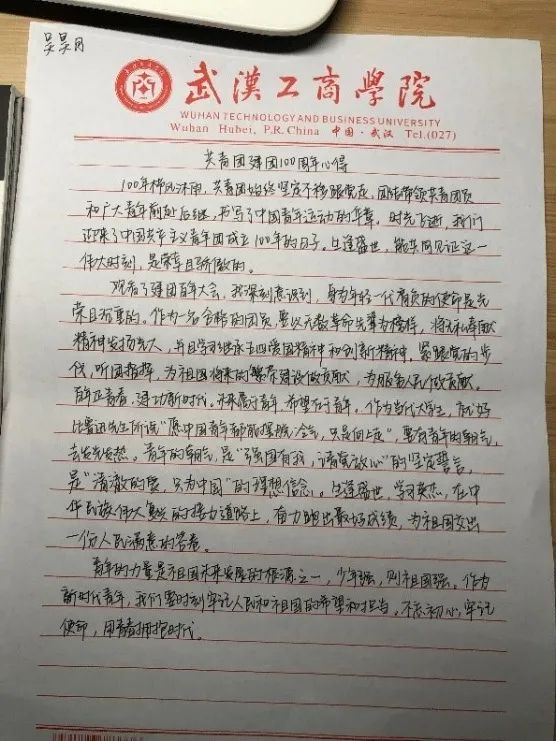 吴昊月
武漢工商學院
WUHAN TECHNOLOGY AND BUSINESS UNIVERSITY
Wuhan Hubei, P.R. China 中国·武汉 Tel.(027)
共青团建团100周年心得
100年栉风沐雨,共青团始终坚定不移跟党走,团结带领共青团员
和广大青年前赴后继,书写了中国青年运动的华章。时光飞逝,我们
迎来了中国共产主义青年团成立100年的日子。生逢盛世,能共同见证这一
伟大时刻,是荣幸且骄傲的。
观看了建团百年大会,我深刻意识到,身为年轻一代肩负的使命是光
荣且沉重的。作为一名合格的团员,要以无数革命先辈为榜样,将无私奉献
精神发扬光大,并且学习继承五四爱国精神和创新精神。紧跟党的步
伐,听团指挥,为祖国将来的繁荣建设做贡献,为服务人民做贡献。
百年正青春,建功新时代。未来属于青年,希望在于青年。作为当代大学生,就好
比鲁迅先生所说“愿中国青年都能摆脱冷气,只是向上走”,要有青年的朝气,
去发光发热。青年的朝气,是“强国有我,请党放心”的坚定誓言,
是“清澈的爱,只为中国”的理想信念。生逢盛世,学习榜样,在中
华民族伟大复兴的接力道路上,奋力跑出最好成绩,为祖国交出
一份人民满意的答卷。
青年的力量是祖国未来发展的根源之一,少年强,则祖国强。作为
新时代青年,我们要时刻牢记人民和祖国的希望和担当。不忘初心,牢记
使命,用青春拥抱时代。